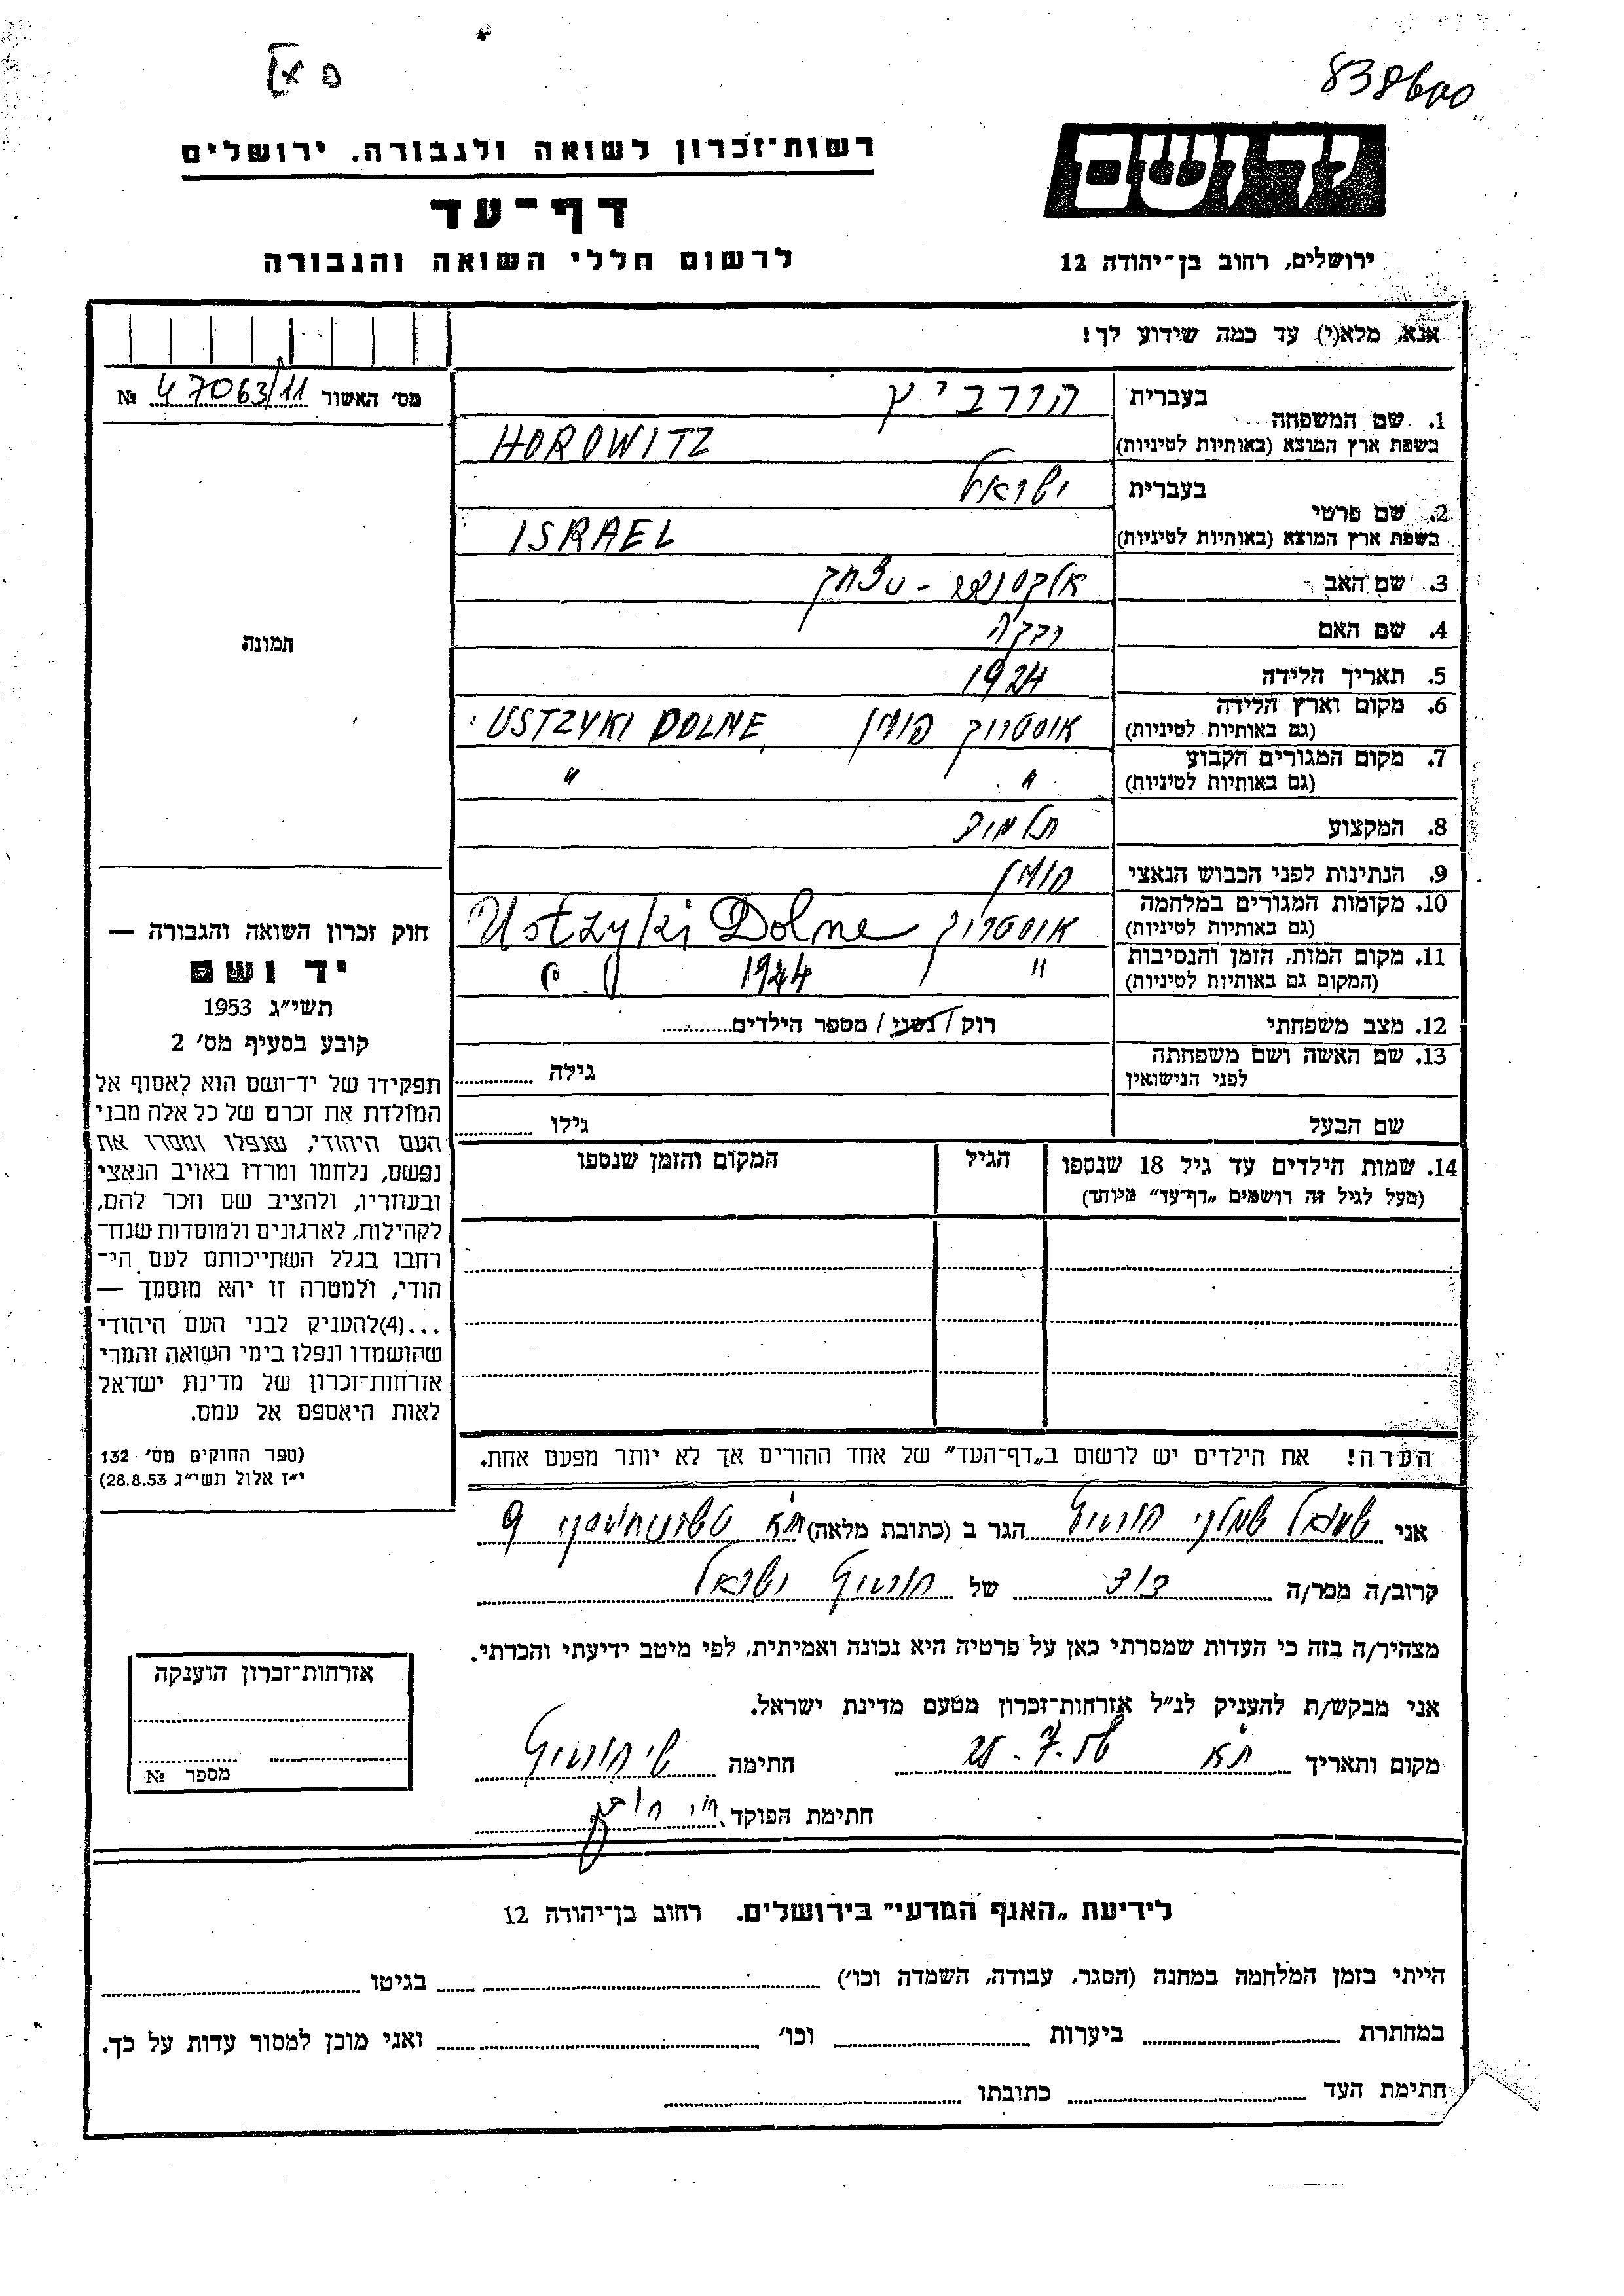 838600
רשות־זכרון לשואה ולגבורה, ירושלים
יד ושם
דף־עד
לרשום חללי השואה והגבורה
ירושלים, רחוב בן־יהודה 12
אנא, מלא(י) עד כמה שידוע לך!
מס׳ האשור 47063/11 №
1. שם המשפחה
בעברית הורביץ
בשפת ארץ המוצא (באותיות לטיניות) HOROWITZ
2. שם פרטי
בעברית ישראל
בשפת ארץ המוצא (באותיות לטיניות) ISRAEL
3. שם האב אלכסנדר - יצחק
4. שם האם רבקה
5. תאריך הלידה 1924
6. מקום וארץ הלידה
(גם באותיות לטיניות) אוסטריק פולין USTZYKI DOLNE
7. מקום המגורים הקבוע
(גם באותיות לטיניות) " "
8. המקצוע תלמיד
9. הנתינות לפני הכבוש הנאצי פולין
10. מקומות המגורים במלחמה
(גם באותיות לטיניות) אוסטריק Ustzyki Dolne
11. מקום המות, הזמן והנסיבות
(המקום גם באותיות לטיניות) " 1944
12. מצב משפחתי רוק / נשוי / מספר הילדים
13. שם האשה ושם משפחתה
לפני הנישואין גילה
שם הבעל גילו
14. שמות הילדים עד גיל 18 שנספו
(מעל לגיל זה רושמים „דף־עד״ מיוחד)
הגיל
המקום והזמן שנספו
הערה! את הילדים יש לרשום ב„דף־העד״ של אחד ההורים אך לא יותר מפעם אחת.
תמונה
חוק זכרון השואה והגבורה —
יד ושם
תשי״ג 1953
קובע בסעיף מס׳ 2
תפקידו של יד־ושם הוא לאסוף אל
המולדת את זכרם של כל אלה מבני
העם היהודי, שנפלו ומסרו את
נפשם, נלחמו ומרדו באויב הנאצי
ובעוזריו, ולהציב שם וזכר להם,
לקהילות, לארגונים ולמוסדות שנח־
רחבו בגלל השתייכותם לעם הי־
הודי, ולמטרה זו יהא מוסמך —
...(4)להעניק לבני העם היהודי
שהושמדו ונפלו בימי השואה והמרי
אזרחות־זכרון של מדינת ישראל
לאות היאספם אל עמם.
(ספר החוקים מס׳ 132
י״ז אלול תשי״ג 28.8.53)
אני שמואל הורוביץ הגר ב (כתובת מלאה) ת"א 9
קרוב/ה מכר/ה דוד של הורוביץ ישראל
מצהיר/ה בזה כי העדות שמסרתי כאן על פרטיה היא נכונה ואמיתית, לפי מיטב ידיעתי והכרתי.
אני מבקש/ת להעניק לנ״ל אזרחות־זכרון מטעם מדינת ישראל.
מקום ותאריך ת"א 25.7.56 חתימה ש. הורוביץ
חתימת הפוקד
אזרחות־זכרון הוענקה
מספר №
לידיעת „האגף המדעי״ בירושלים. רחוב בן־יהודה 12
הייתי בזמן המלחמה במחנה (הסגר, עבודה, השמדה וכו׳) בגיטו
במחתרת ביערות וכו׳ ואני מוכן למסור עדות על כך.
חתימת העד כתובתו